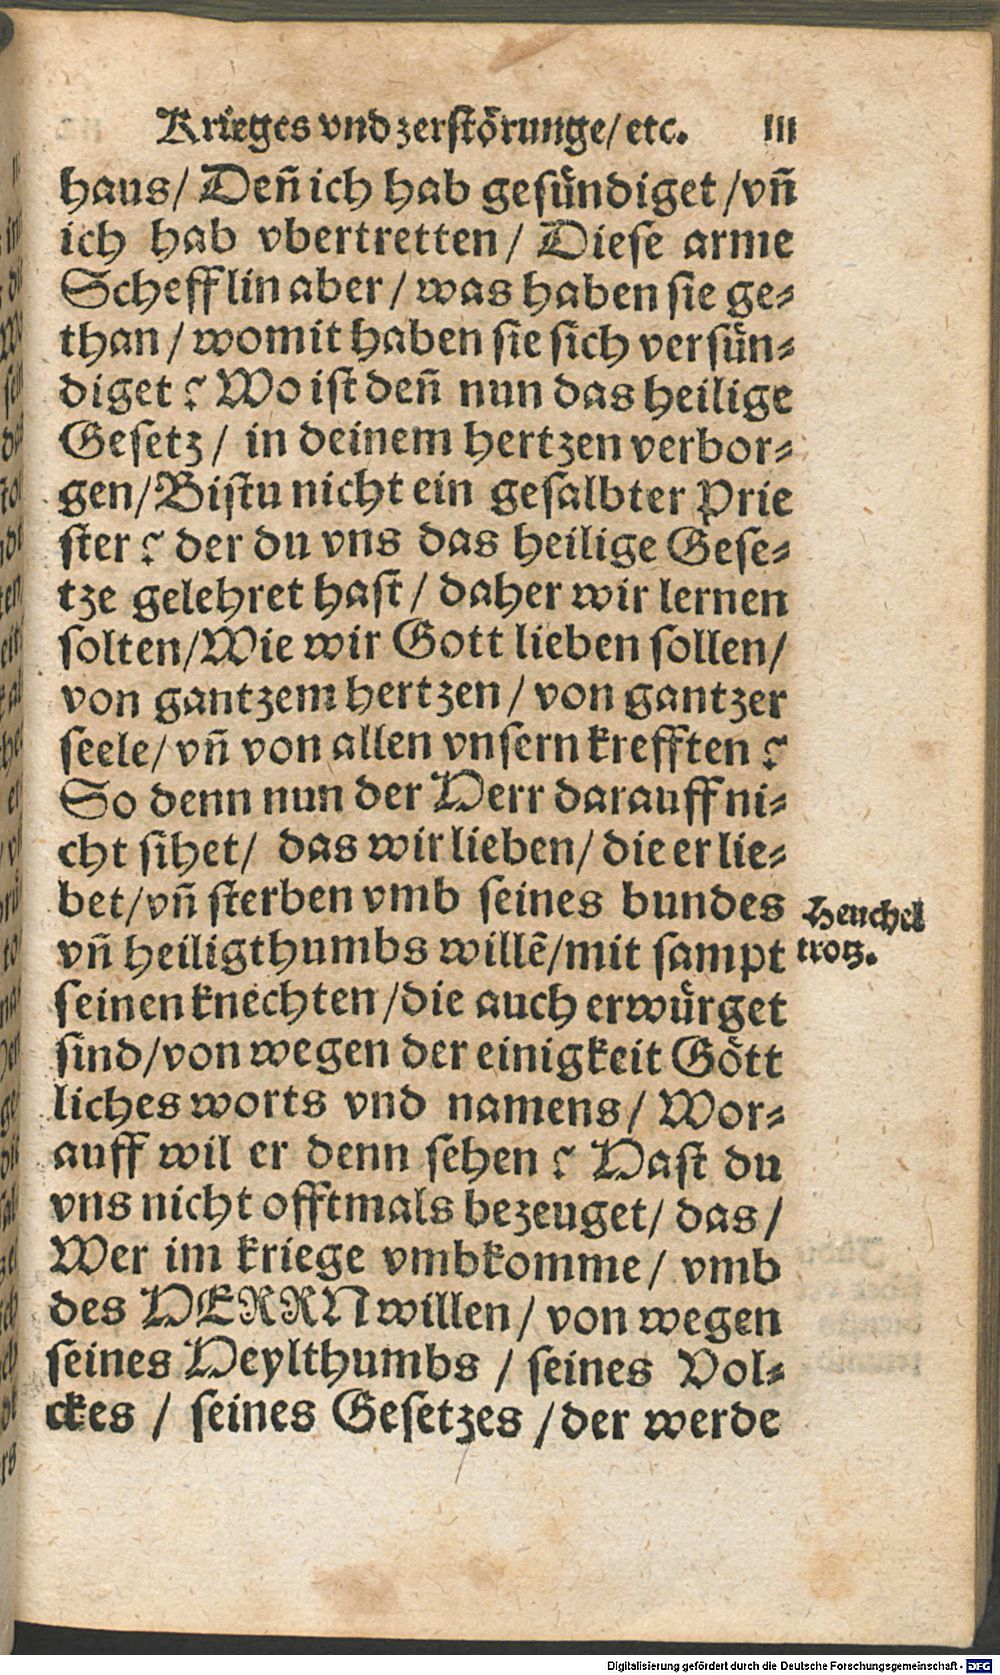 Krieges vnd zerstörunge/ etc. III
haus/ Deñ ich hab gesündiget /vñ
ich hab vbertretten/ Diese arme
Schefflin aber/ was haben sie ge⸗
than/ womit haben sie sich versün⸗
diget? Wo ist deñ nun das heilige
Gesetz/ in deinem hertzen verbor⸗
gen/Bistu nicht ein gesalbter Prie
ster? der du vns das heilige Gese⸗
tze gelehret hast/ daher wir lernen
solten/Wie wir Gott lieben sollen/
von gantzem hertzen/ von gantzer
seele/ vñ von allen vnsern krefften?
So denn nun der Herr darauff ni⸗
cht sihet/ das wir lieben/ die er lie⸗
bet/vñ sterben vmb seines bundes
vñ heiligthumbs willẽ/mit sampt
seinen knechten/die auch erwürget
sind/von wegen der einigkeit Gött
liches worts vnd namens/ Wor⸗
auff wil er denn sehen? Hast du
vns nicht offtmals bezeuget/ das/
Wer im kriege vmbkomme/ vmb
des HERRN willen/ von wegen
seines Heylthumbs / seines Vol⸗
ckes / seines Gesetzes /der werde
Heuchel
trotz.
Digitalisierung gefördert durch die Deutsche Forschungsgemeinschaft - DFG